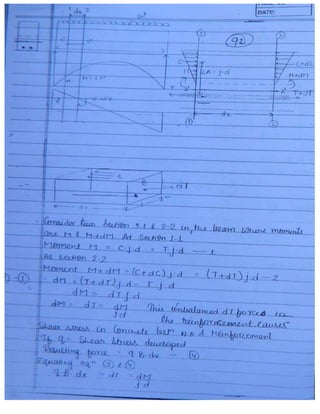 DATE:
dx
w
92
C
C+dC
M
M+dM
LA = jd
T
T+dT
dx
1
2
dT
Consider two Section 1-1 & 2-2 in the beam where moments
are M & M+dM. At Section 1-1
Moment M = C.j.d = T.j.d — 1
At Section 2-2
Moment M+dM = (C+dC)j.d = (T+dT)j.d - 2
dM = (T+dT)j.d - T.j.d
dM = dT.j.d
dM = dT = dM This unbalanced dT force in
jd the reinforcement causes
Shear stress in Concrete betn N.A & Reinforcement
If q = Shear stress developed
Resulting force = q.B.dx — (4)
Equating eqn (3) & (4)
q.B.dx = dT = dM
jd